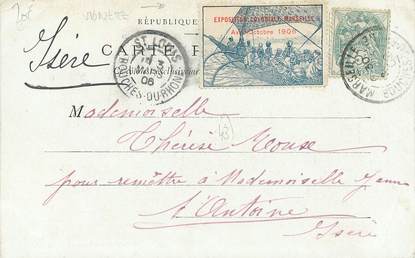 20f VIGNETTE
RÉPUBLIQUE
Isère
CARTE
ST LOUIS
06
BOUCHES-DU-RHONE
EXPOSITION COLONIALE MARSEILLE
Avril-Octobre 1906
MARSEILLE
Mademoiselle
Thérèse
pour remettre à Mademoiselle
St Antoine
Isère